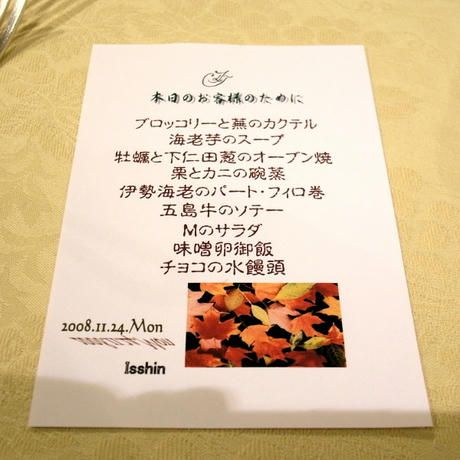 本日のお客様のために
ブロッコリーと蕪のカクテル
海老芋のスープ
牡蠣と下仁田葱のオーブン焼
栗とカニの碗蒸
伊勢海老のパート・フィロ巻
五島牛のソテー
Mのサラダ
味噌卵御飯
チョコの水饅頭
2008.11.24.Mon
Isshin